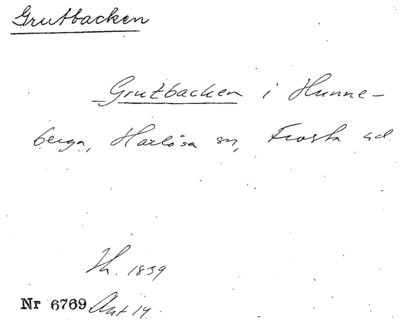 Grutbacken
Grutbacken i Hunne-
berga, Harlösa sn, Frosta hd
Th. 1839
Nr 6769 Akt 14.